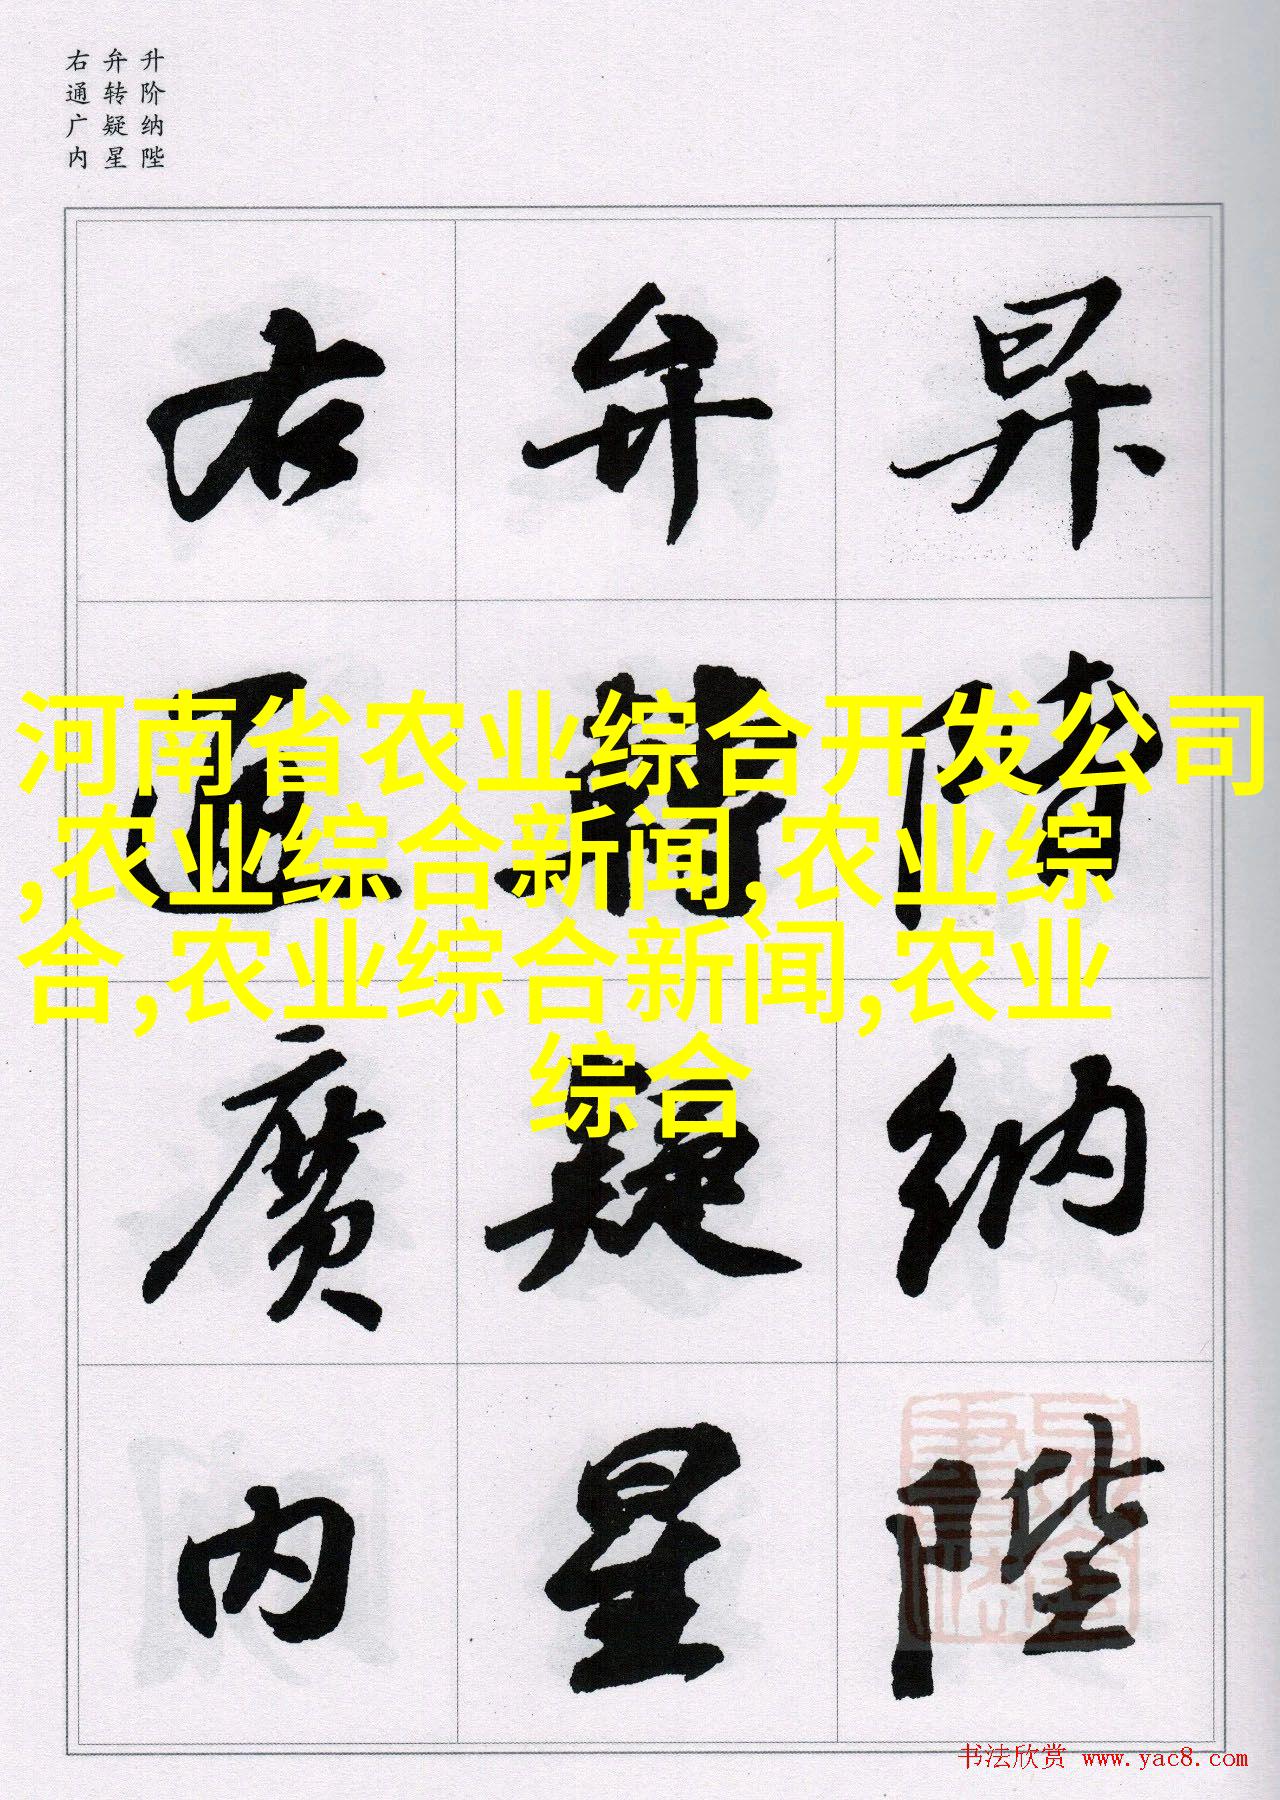 升阶纳陛
弁转疑星
右通广内
昇階纳陛
弁轉疑星
右通廣内
河南省农业综合开发公司
,农业综合新闻,农业综
合,农业综合新闻,农业
综合
书法欣赏 www.yac8.com